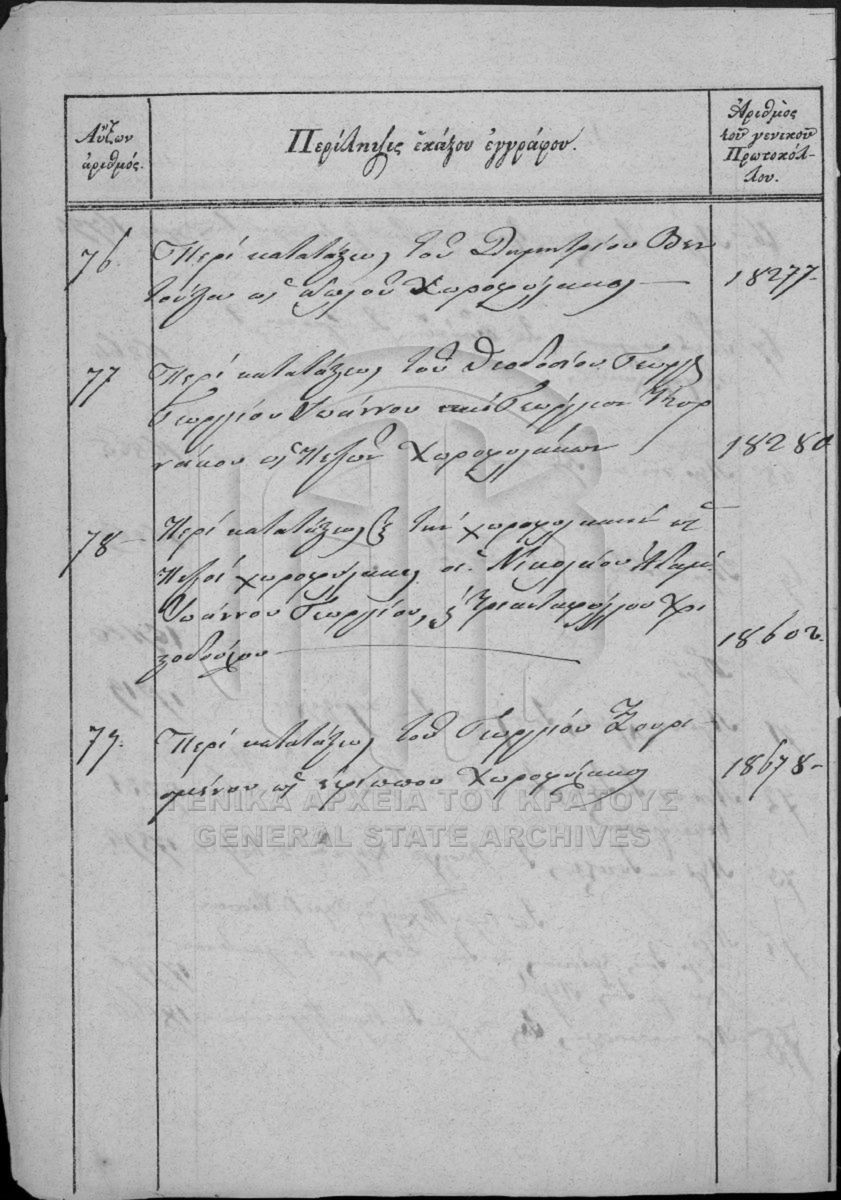 Αὔξων
ἀριθμός.
Περίληψις ἑκάστου ἐγγράφου.
Ἀριθμὸς
τοῦ γενικοῦ
Πρωτοκόλ-
λου.
76. Περὶ κατατάξεως τοῦ Δημητρίου Βεν
ὡς ἁπλοῦ Χωροφύλακος — 18277-
77 Περὶ κατατάξεως τοῦ Θεοδοσίου Γεωργ
Γεωργίου Ἰωάννου καὶ Γεωργίου
νάκου ὡς Πεζῶν Χωροφυλάκων 18280
78- Περὶ κατατάξεως εἰς τὴν χωροφυλακὴν ὡς
Πεζοὶ χωροφύλακες οἱ Νικολάου Ἀδαμ
Ἰωάννου Γεωργίου, Τριανταφύλλου Χρι
στοδούλου — 18602.
79. Περὶ κατατάξεως τοῦ Γεωργίου
μένου ὡς ἐφίππου Χωροφύλακος 18678-
ΓΕΝΙΚΑ ΑΡΧΕΙΑ ΤΟΥ ΚΡΑΤΟΥΣ
GENERAL STATE ARCHIVES